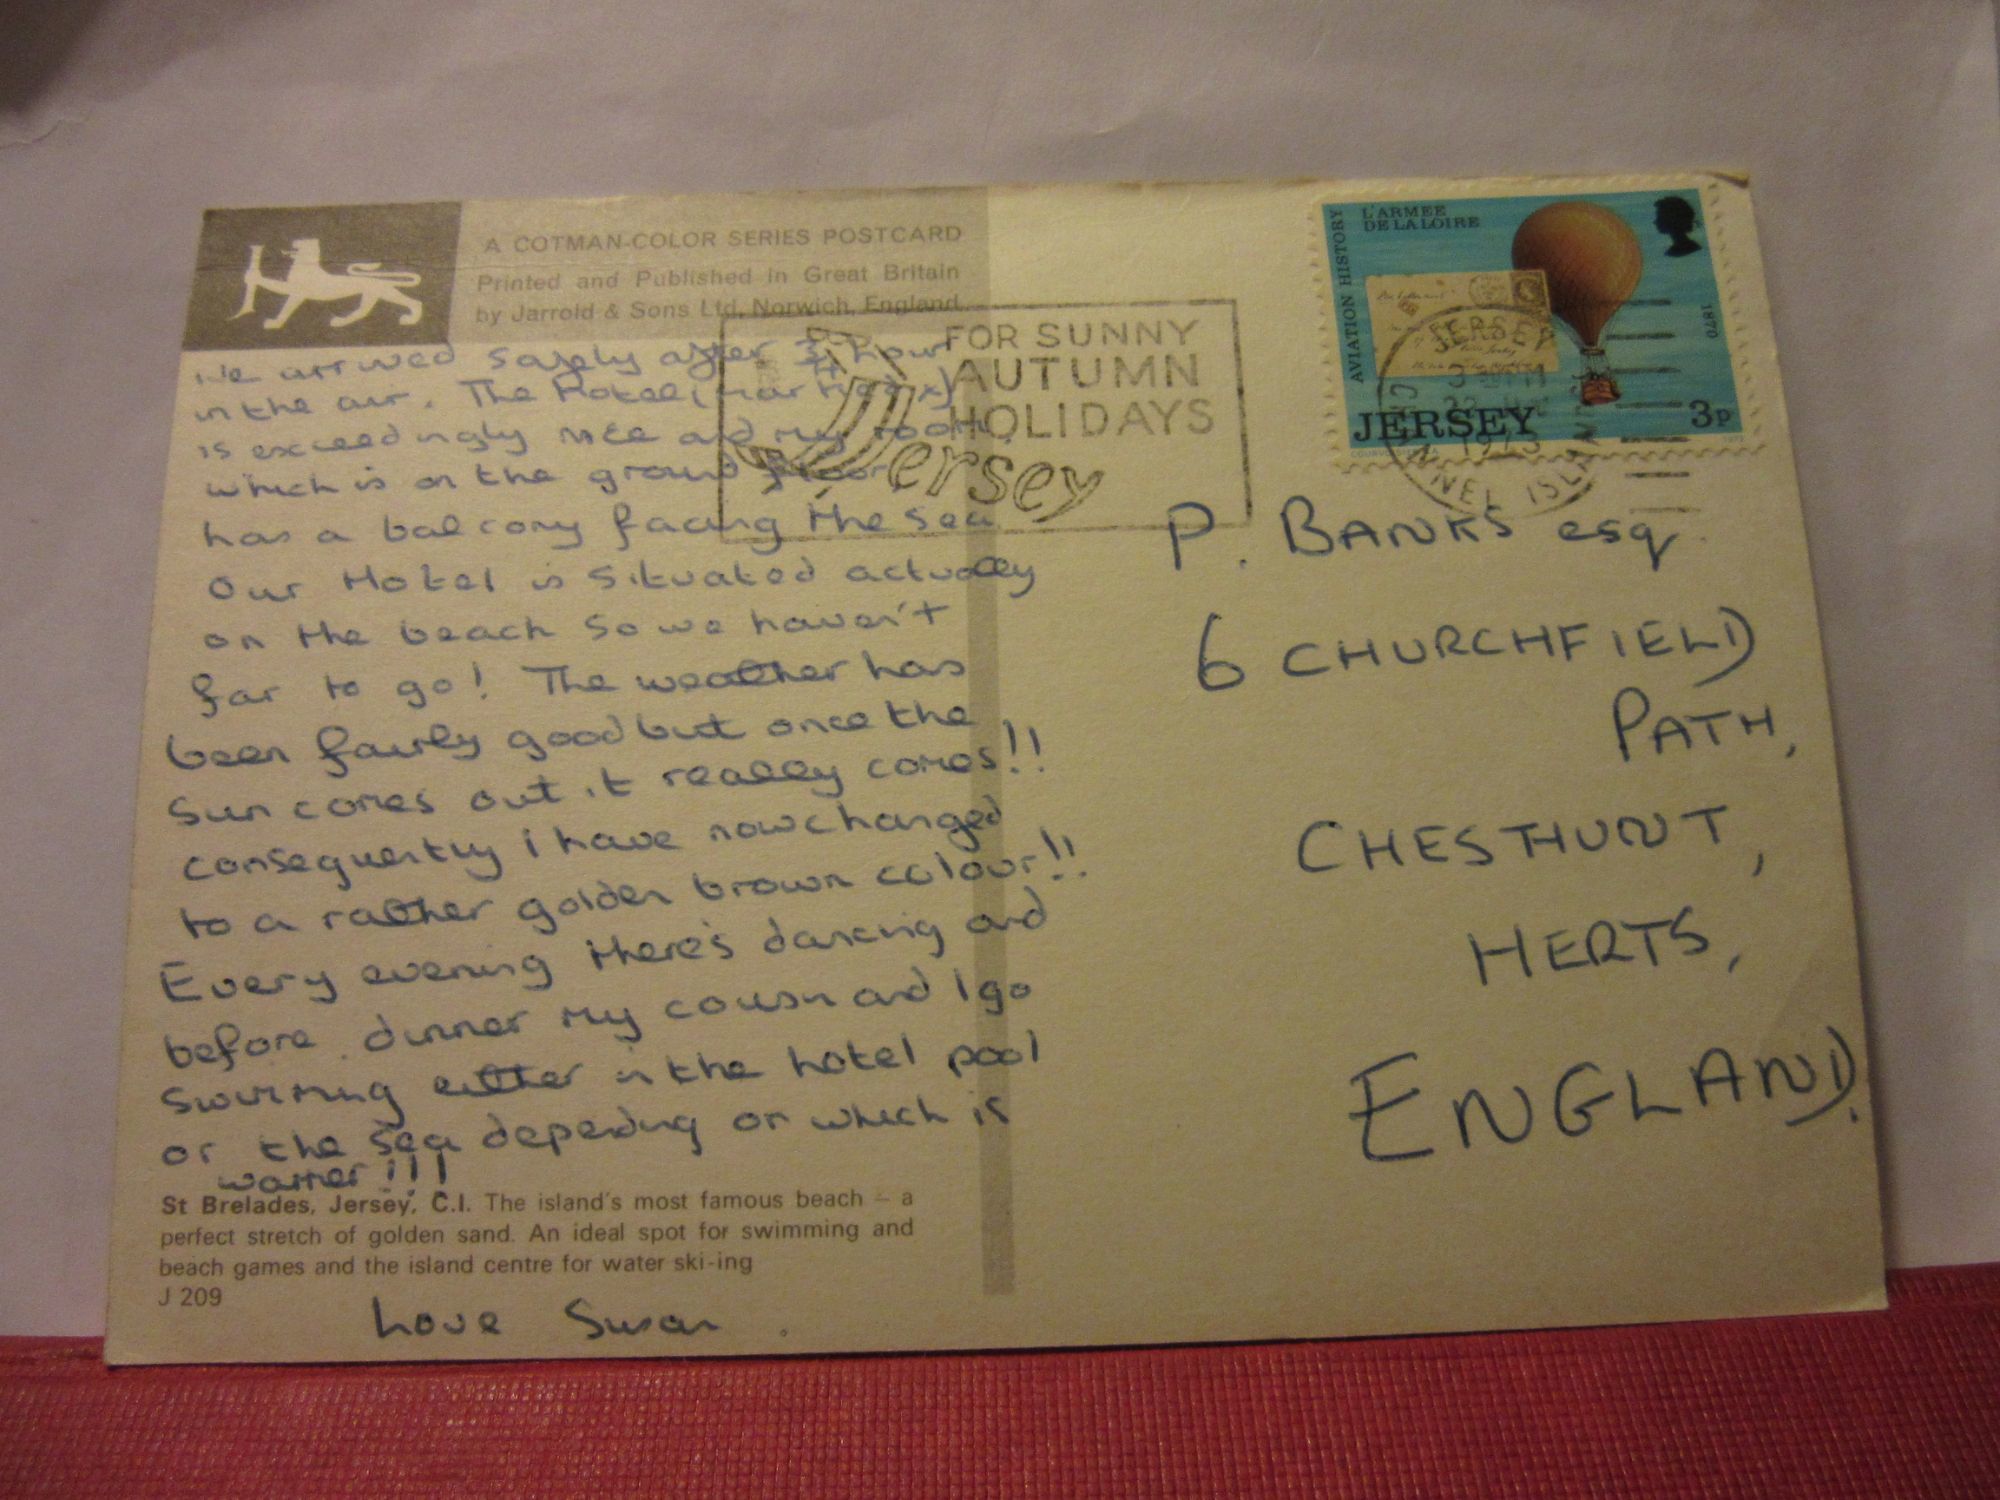 A COTMAN-COLOR SERIES POSTCARD
Printed and Published in Great Britain
by Jarrold & Sons Ltd, Norwich, England.
We arrived safely after 3/4 hour
in the air. The Hotel
is exceedingly nice and my room,
which is on the ground floor,
has a balcony facing the sea
Our Hotel is situated actually
on the beach so we haven't
far to go! The weather has
been fairly good but once the
sun comes out it really comes!!
consequently i have now changed
to a rather golden brown colour!!
Every evening there's dancing and
before dinner my cousin and I go
swimming either in the hotel pool
or the sea depending on which is
warmer!!!
St Brelades, Jersey, C.I. The island's most famous beach – a
perfect stretch of golden sand. An ideal spot for swimming and
beach games and the island centre for water ski-ing
J 209
Love Susan.
FOR SUNNY
AUTUMN
HOLIDAYS
Jersey
AVIATION HISTORY
L'ARMEE
DE LA LOIRE
1870
JERSEY 3p
JERSEY
1973
CHANNEL ISLANDS
P. BANKS esq.
6 CHURCHFIELD
PATH,
CHESTHUNT,
HERTS,
ENGLAND.